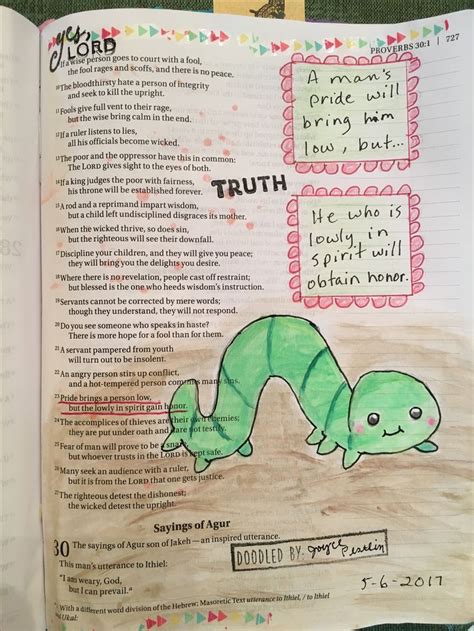 PROVERBS 30:1 | 727
yes,
LORD
If a wise person goes to court with a fool,
the fool rages and scoffs, and there is no peace.
10 The bloodthirsty hate a person of integrity
and seek to kill the upright.
11 Fools give full vent to their rage,
but the wise bring calm in the end.
12 If a ruler listens to lies,
all his officials become wicked.
13 The poor and the oppressor have this in common:
The LORD gives sight to the eyes of both.
14 If a king judges the poor with fairness,
his throne will be established forever.
TRUTH
15 A rod and a reprimand impart wisdom,
but a child left undisciplined disgraces its mother.
16 When the wicked thrive, so does sin,
but the righteous will see their downfall.
17 Discipline your children, and they will give you peace;
they will bring you the delights you desire.
18 Where there is no revelation, people cast off restraint;
but blessed is the one who heeds wisdom's instruction.
19 Servants cannot be corrected by mere words;
though they understand, they will not respond.
20 Do you see someone who speaks in haste?
There is more hope for a fool than for them.
21 A servant pampered from youth
will turn out to be insolent.
22 An angry person stirs up conflict,
and a hot-tempered person commits many sins.
23 Pride brings a person low,
but the lowly in spirit gain honor.
24 The accomplices of thieves are their own enemies;
they are put under oath and dare not testify.
25 Fear of man will prove to be a snare,
but whoever trusts in the LORD is kept safe.
26 Many seek an audience with a ruler,
but it is from the LORD that one gets justice.
27 The righteous detest the dishonest;
the wicked detest the upright.
Sayings of Agur
30 The sayings of Agur son of Jakeh — an inspired utterance.
This man's utterance to Ithiel:
"I am weary, God,
but I can prevail.
With a different word division of the Hebrew; Masoretic Text utterance to Ithiel, / to Ithiel
Ukal:
A man's
pride will
bring him
low, but...
He who is
lowly in
spirit will
obtain honor.
DOODLED BY: Joyce
5-6-2017